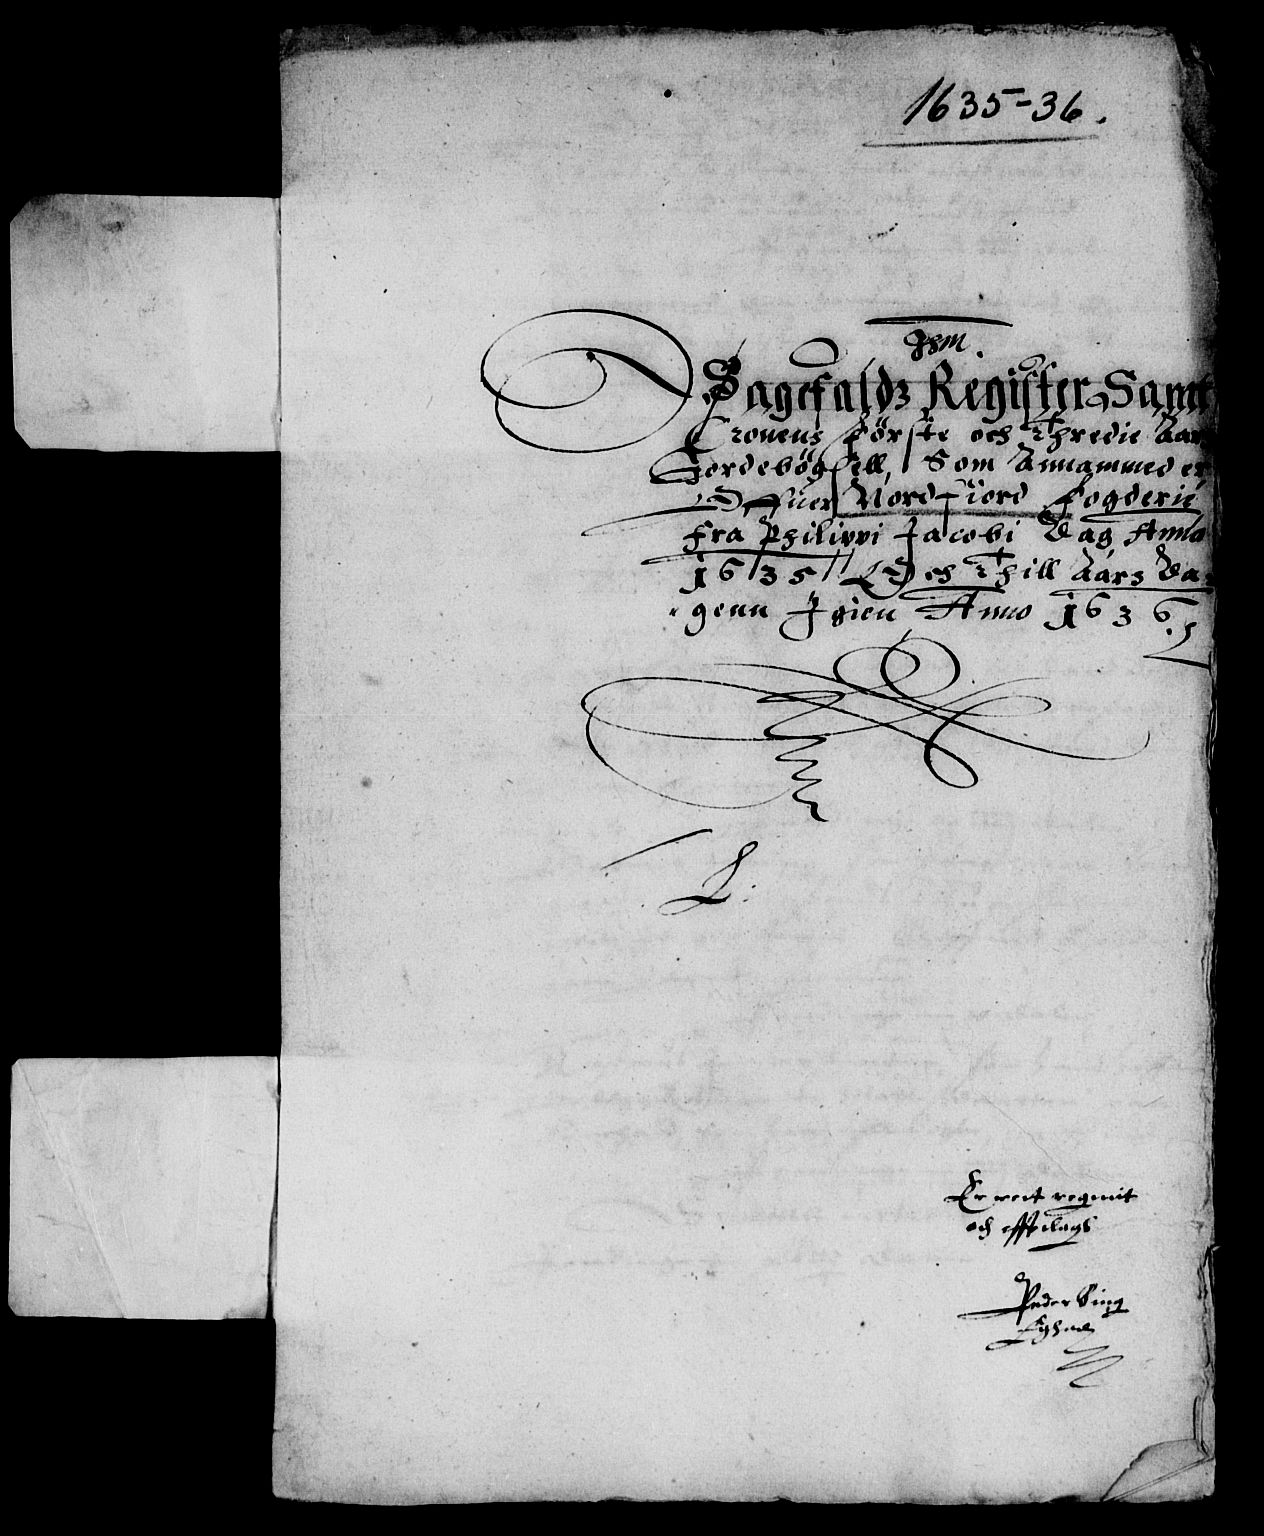 1635-36.
Jhm.
Sagefaldz Register Samt
Cronens Første och Thredie Aar
Jordebögsell, Som Annammed er
Offuer Nordfiord Fogderie
Fra Philippi Jacobi Dag Anno
1635 Och Thill Aars Da-
genn Igien Anno 1636.
L:
Er rect regnit
och efftelagt
Peder